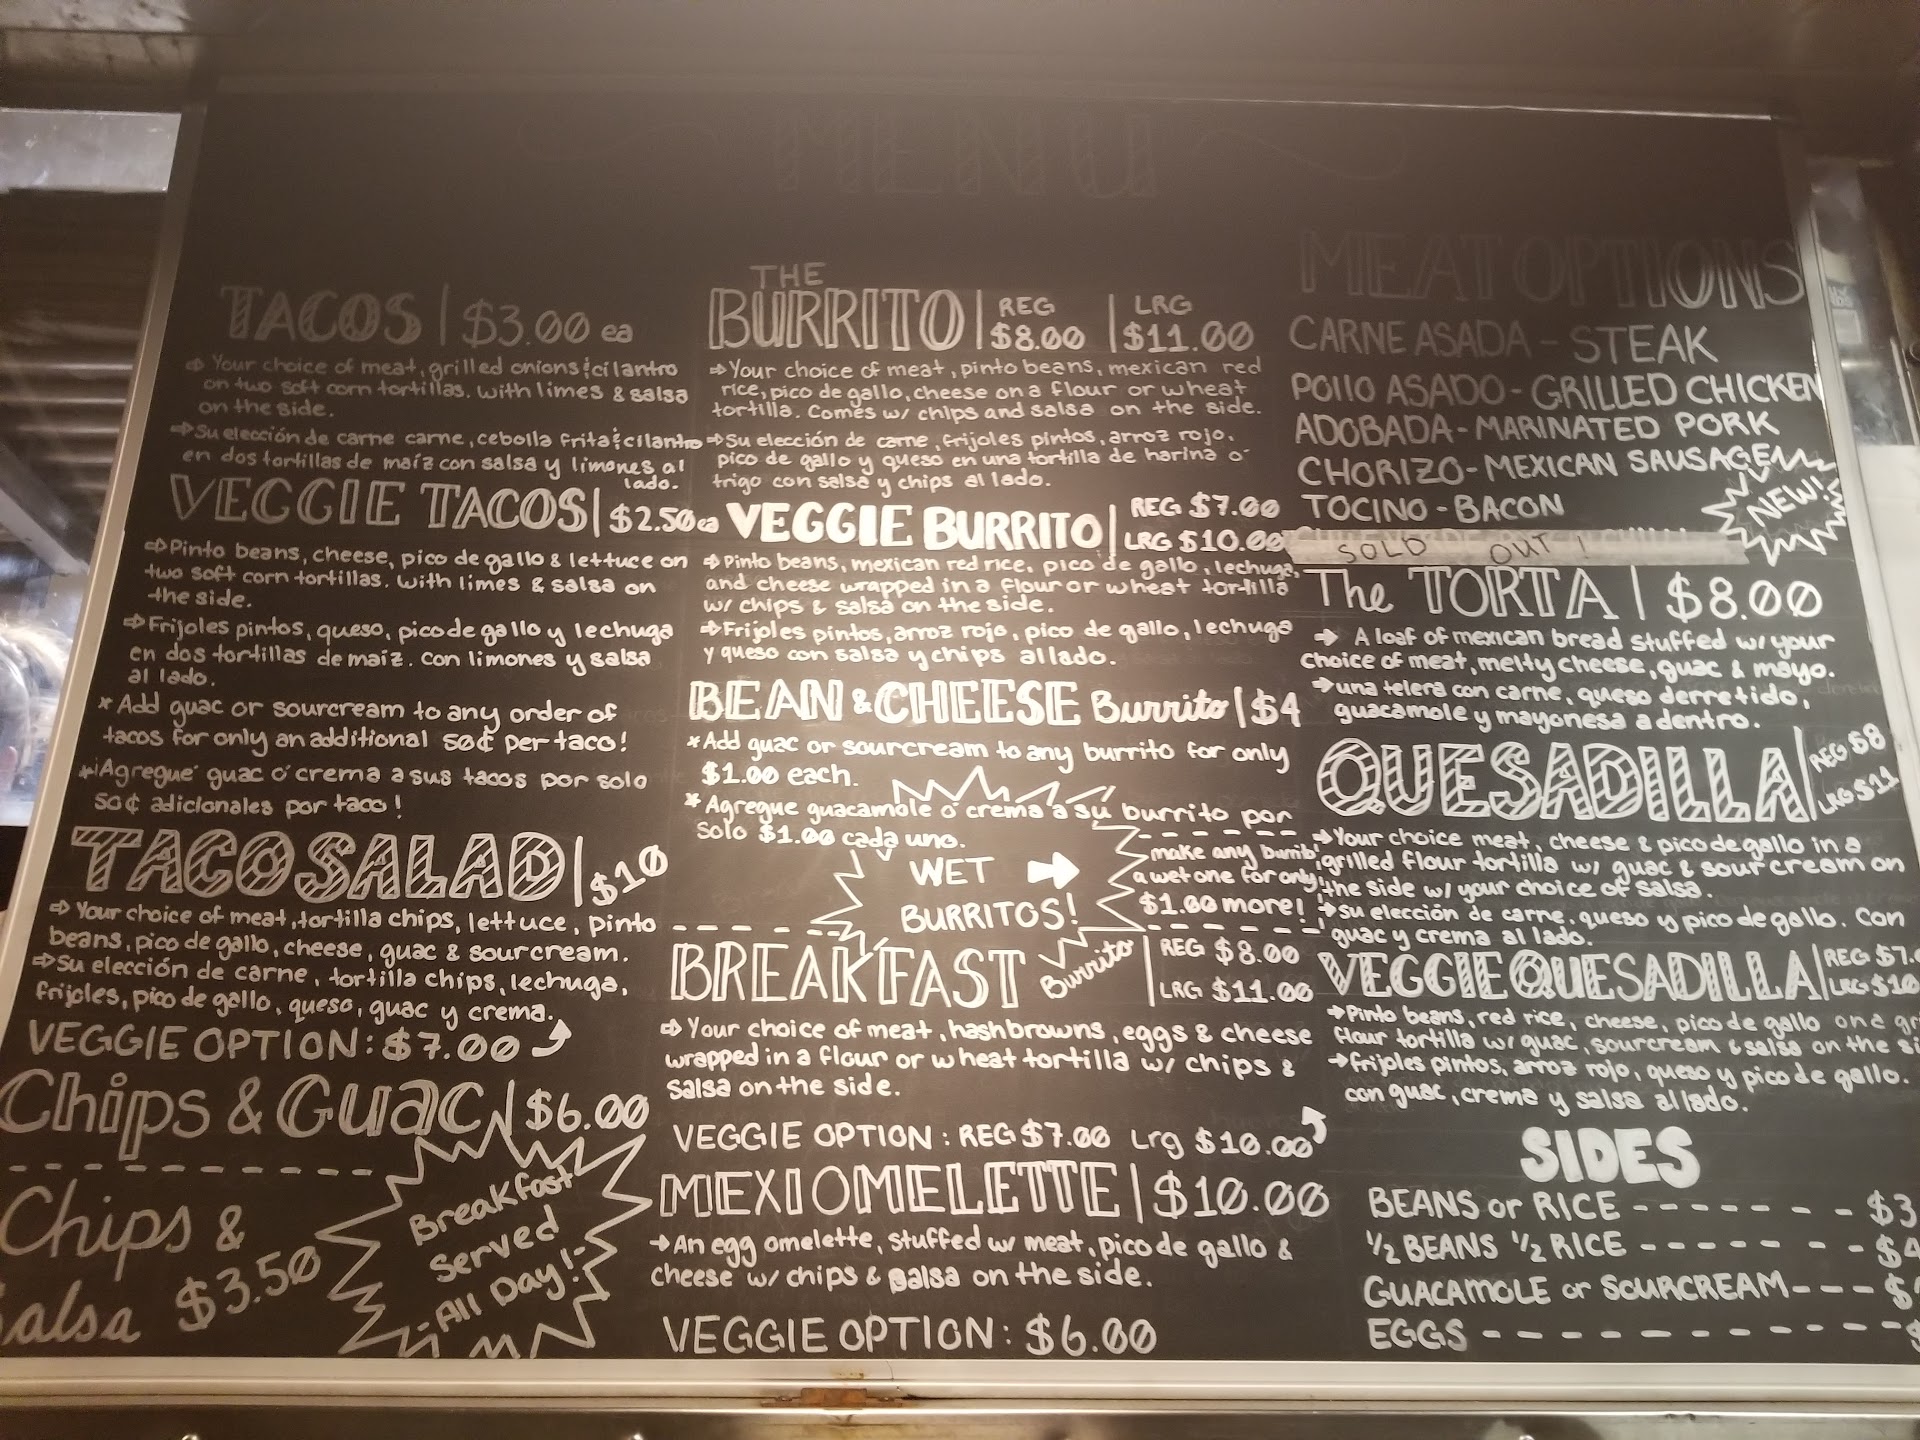 MENU
TACOS | $3.00 ea
⇨ Your choice of meat, grilled onions & cilantro
on two soft corn tortillas. with limes & salsa
on the side.
⇨ Su elección de carne carne, cebolla frita & cilantro
en dos tortillas de maíz con salsa y limones al
lado.
VEGGIE TACOS | $2.50 ea
⇨ Pinto beans, cheese, pico de gallo & lettuce on
two soft corn tortillas. with limes & salsa on
the side.
⇨ Frijoles pintos, queso, pico de gallo y lechuga
en dos tortillas de maíz. con limones y salsa
al lado.
* Add guac or sourcream to any order of
tacos for only an additional 50¢ per taco!
*¡Agregué guac ó crema a sus tacos por solo
50¢ adicionales por taco!
TACO SALAD | $10
⇨ Your choice of meat, tortilla chips, lettuce, pinto
beans, pico de gallo, cheese, guac & sourcream.
⇨ Su elección de carne, tortilla chips, lechuga,
frijoles, pico de gallo, queso, guac y crema.
VEGGIE OPTION: $7.00
Chips & Guac | $6.00
Chips &
Salsa $3.50
Breakfast
Served
-All Day!-
THE
BURRITO | REG $8.00 | LRG $11.00
⇨ Your choice of meat, pinto beans, mexican red
rice, pico de gallo, cheese on a flour or wheat
tortilla. Comes w/ chips and salsa on the side.
⇨ Su elección de carne, frijoles pintos, arroz rojo,
pico de gallo y queso en una tortilla de harina ó
trigo con salsa y chips al lado.
VEGGIE BURRITO | REG $7.00
LRG $10.00
⇨ Pinto beans, mexican red rice, pico de gallo, lechuga,
and cheese wrapped in a flour or wheat tortilla
w/ chips & salsa on the side.
⇨ Frijoles pintos, arroz rojo, pico de gallo, lechuga
y queso con salsa y chips al lado.
BEAN & CHEESE Burrito | $4
* Add guac or sourcream to any burrito for only
$1.00 each.
* Agregue guacamole ó crema a su burrito por
solo $1.00 cada uno.
WET
BURRITOS!
make any burrito
a wet one for only
$1.00 more!
BREAKFAST Burrito | REG $8.00
LRG $11.00
⇨ Your choice of meat, hashbrowns, eggs & cheese
wrapped in a flour or wheat tortilla w/ chips &
salsa on the side.
VEGGIE OPTION: REG $7.00 Lrg $10.00
MEXIOMELETTE | $10.00
→ An egg omelette, stuffed w/ meat, pico de gallo &
cheese w/ chips & salsa on the side.
VEGGIE OPTION: $6.00
MEAT OPTIONS
CARNE ASADA - STEAK
POllO ASADO - GRILLED CHICKEN
ADOBADA - MARINATED PORK
CHORIZO - MEXICAN SAUSAGE
TOCINO - BACON
NEW!
SOLD OUT!
The TORTA | $8.00
→ A loaf of mexican bread stuffed w/ your
choice of meat, melty cheese, guac & mayo.
→ una telera con carne, queso derretido,
guacamole y mayonesa adentro.
QUESADILLA | REG $8
LRG $11
→ Your choice meat, cheese & pico de gallo in a
grilled flour tortilla w/ guac & sour cream on
the side w/ your choice of salsa.
→ Su elección de carne, queso y pico de gallo. Con
guac y crema al lado.
VEGGIE QUESADILLA | REG $7.
LRG $10
→ Pinto beans, red rice, cheese, pico de gallo on a
flour tortilla w/ guac, sourcream & salsa on the
→ frijoles pintos, arroz rojo, queso y pico de gallo.
con guac, crema y salsa al lado.
SIDES
BEANS or RICE - - - - - - - $3
½ BEANS ½ RICE - - - - - - - $4
GUACAMOLE or SOURCREAM - - - $
EGGS - - - - - - - - - - - - $